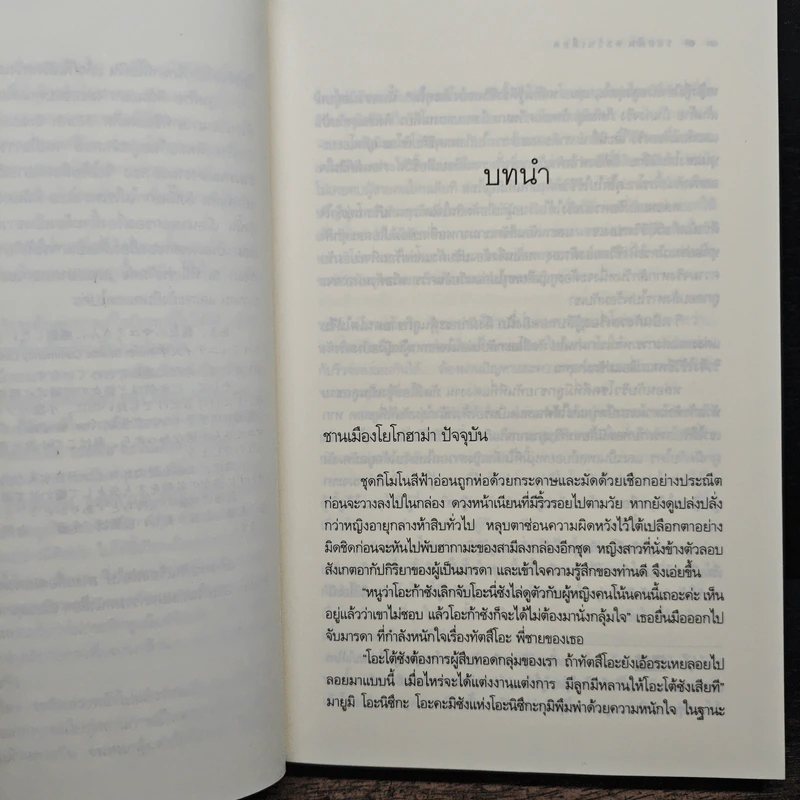 บทนำ
ชานเมืองโยโกฮาม่า ปัจจุบัน
ชุดกิโมโนสีฟ้าอ่อนถูกห่อด้วยกระดาษและมัดด้วยเชือกอย่างประณีต
ก่อนจะวางลงไปในกล่อง ดวงหน้าเนียนที่มีริ้วรอยไปตามวัย หากยังดูเปล่งปลั่ง
กว่าหญิงอายุกลางห้าสิบทั่วไป หลุบตาซ่อนความผิดหวังไว้ใต้เปลือกตาอย่าง
มิดชิดก่อนจะหันไปพับฮากามะของสามีลงกล่องอีกชุด หญิงสาวที่นั่งข้างตัวลอบ
สังเกตอากัปกิริยาของผู้เป็นมารดา และเข้าใจความรู้สึกของท่านดี จึงเอ่ยขึ้น
"หนูว่าโอะก้าซังเลิกจับโอะนี่ซังไล่ดูตัวกับผู้หญิงคนโน้นคนนี้เถอะค่ะ เห็น
อยู่แล้วว่าเขาไม่ชอบ แล้วโอะก้าซังก็จะได้ไม่ต้องมานั่งกลุ้มใจ" เธอยื่นมือออกไป
จับมารดา ที่กำลังหนักใจเรื่องทัตสึโอะ พี่ชายของเธอ
"โอะโต้ซังต้องการผู้สืบทอดกลุ่มของเรา ถ้าทัตสึโอะยังเอ้อระเหยลอยไป
ลอยมาแบบนี้ เมื่อไหร่จะได้แต่งงานแต่งการ มีลูกมีหลานให้โอะโต้ซังเสียที"
มายูมิ โอะนิซึกะ โอะคะมิซังแห่งโอะนิซึกะกุมิพึมพำด้วยความหนักใจ ในฐานะ